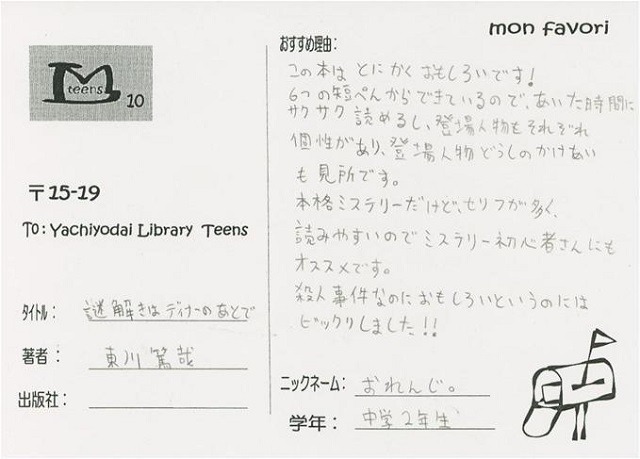 mon favori
M
teens
10
〒15-19
To: Yachiyodai Library Teens
タイトル: 謎解きはディナーのあとで
著者: 東川篤哉
出版社:
おすすめ理由:
この本は とにかく おもしろいです!
6つの短ぺんからできているので、あいた時間に
サクサク 読めるし、登場人物もそれぞれ
個性があり、登場人物どうしのかけあい
も見所です。
本格ミステリーだけど、セリフが多く、
読みやすいのでミステリー初心者さんにも
オススメです。
殺人事件なのにおもしろいというのには
ビックリしました!!
ニックネーム: おれんじ。
学年: 中学2年生